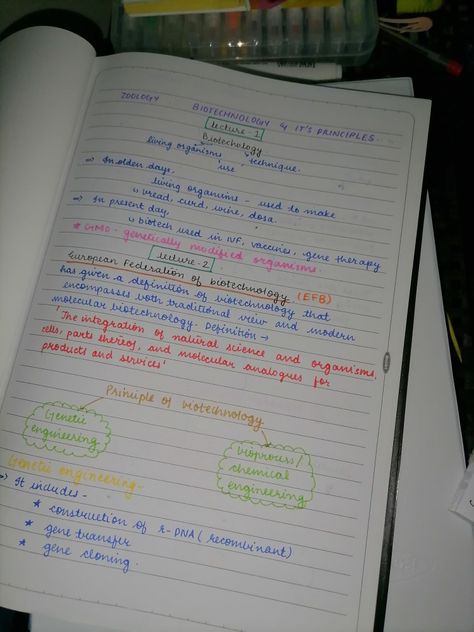 ZOOLOGY BIOTECHNOLOGY & IT'S PRINCIPLES
lecture-1
Biotechology
living organisms use technique.
⇒ In olden days,
living organisms - used to make
↳ bread, curd, wine, dosa.
⇒ In present day,
↳ biotech used in IVF, vaccines, gene therapy
* GMO - genetically modified organisms.
lecture-2
European Federation of biotechnology (EFB)
has given a definition of biotechnology that
encompasses both traditional view and modern
molecular biotechnology. Definition →
'The integration of natural science and organisms,
cells, parts thereof, and molecular analogues for
products and services'
Principle of biotechnology
Genetic
engineering
bioprocess/
chemical
engineering
Genetic engineering-
⇒ It includes -
* construction of r-DNA (recombinant)
* gene transfer
* gene cloning.